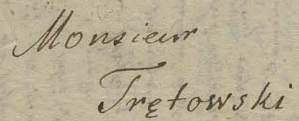 Monsieur
Trętowski